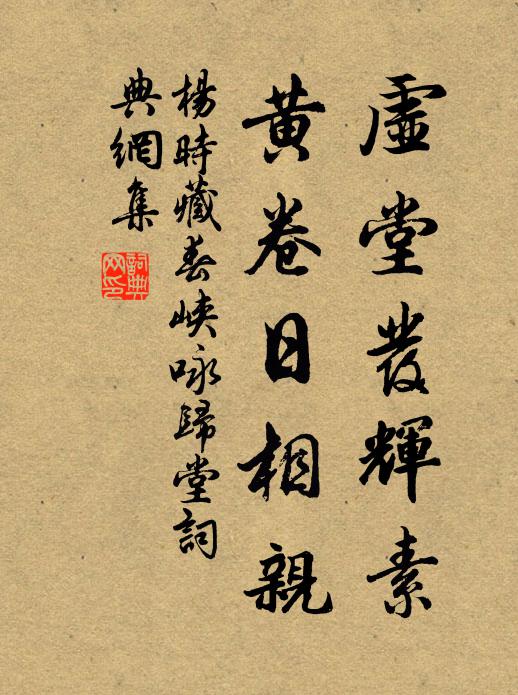 虛堂發輝素
黃卷日相親
楊時藏春峽咏歸堂詞
典網集
詞典网印